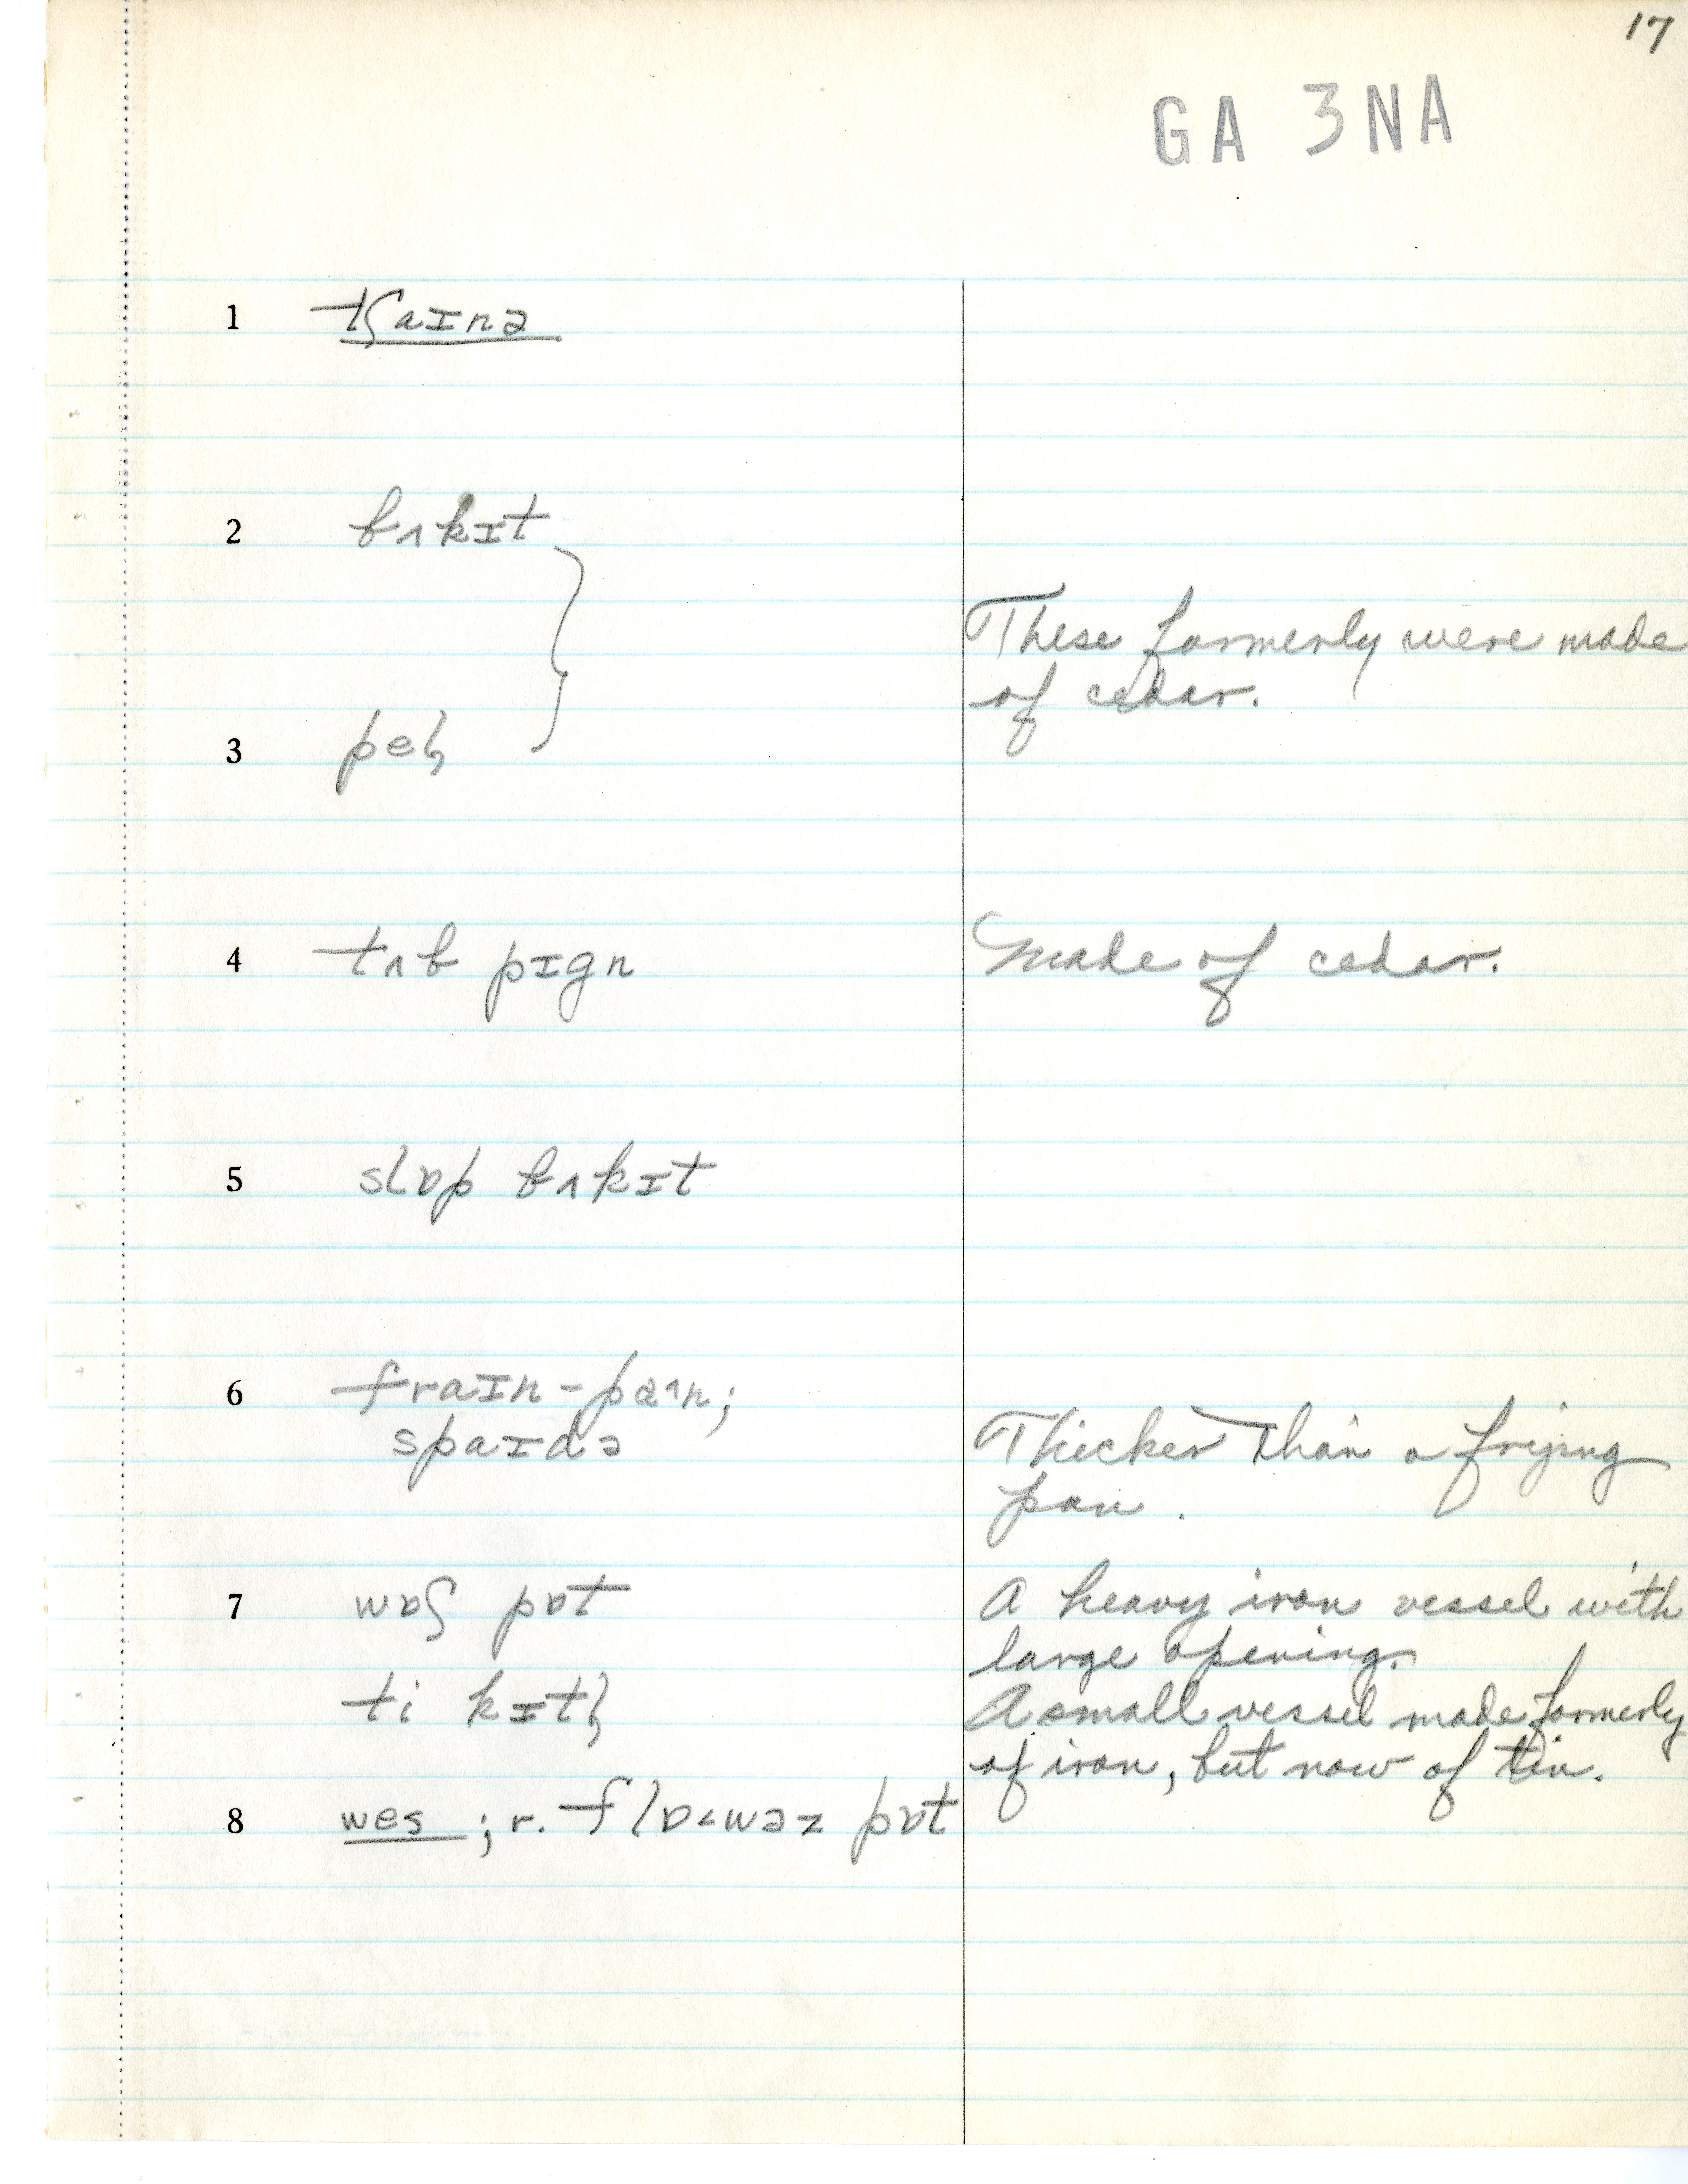 17
GA 3NA
1 tʃaɪnə
2 bʌkɪt
These formerly were made
of cedar.
3 peɫ
4 tʌb pɪgn
Made of cedar.
5 slɒp bʌkɪt
6 fraɪn-pæ˄n;
spaɪdə
Thicker than a frying
pan.
7 wɒʃ pɒt
A heavy iron vessel with
large opening.
ti kɪtɫ
A small vessel made formerly
of iron, but now of tin.
8 wes ; r. flɒ˂wəz pɒt